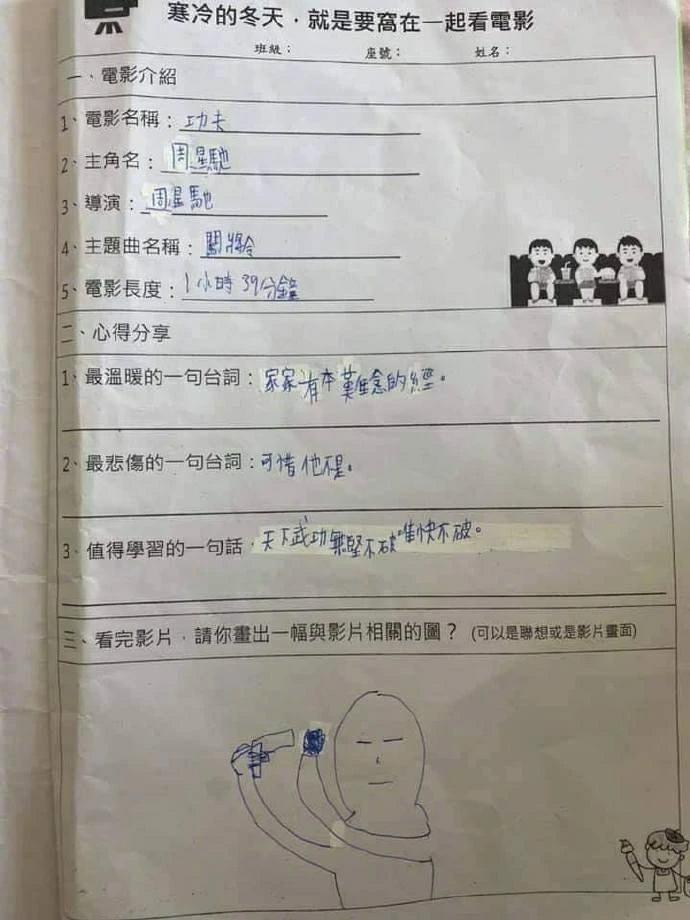 寒冷的冬天，就是要窩在一起看電影
班級： 座號： 姓名：
一、電影介紹
1、電影名稱：功夫
2、主角名：周星馳
3、導演：周星馳
4、主題曲名稱：闖將令
5、電影長度：1小時39分鐘
二、心得分享
1、最溫暖的一句台詞：家家有本難念的經。
2、最悲傷的一句台詞：可惜他不是。
3、值得學習的一句話，天下武功無堅不破唯快不破。
三、看完影片，請你畫出一幅與影片相關的圖？ (可以是聯想或是影片畫面)